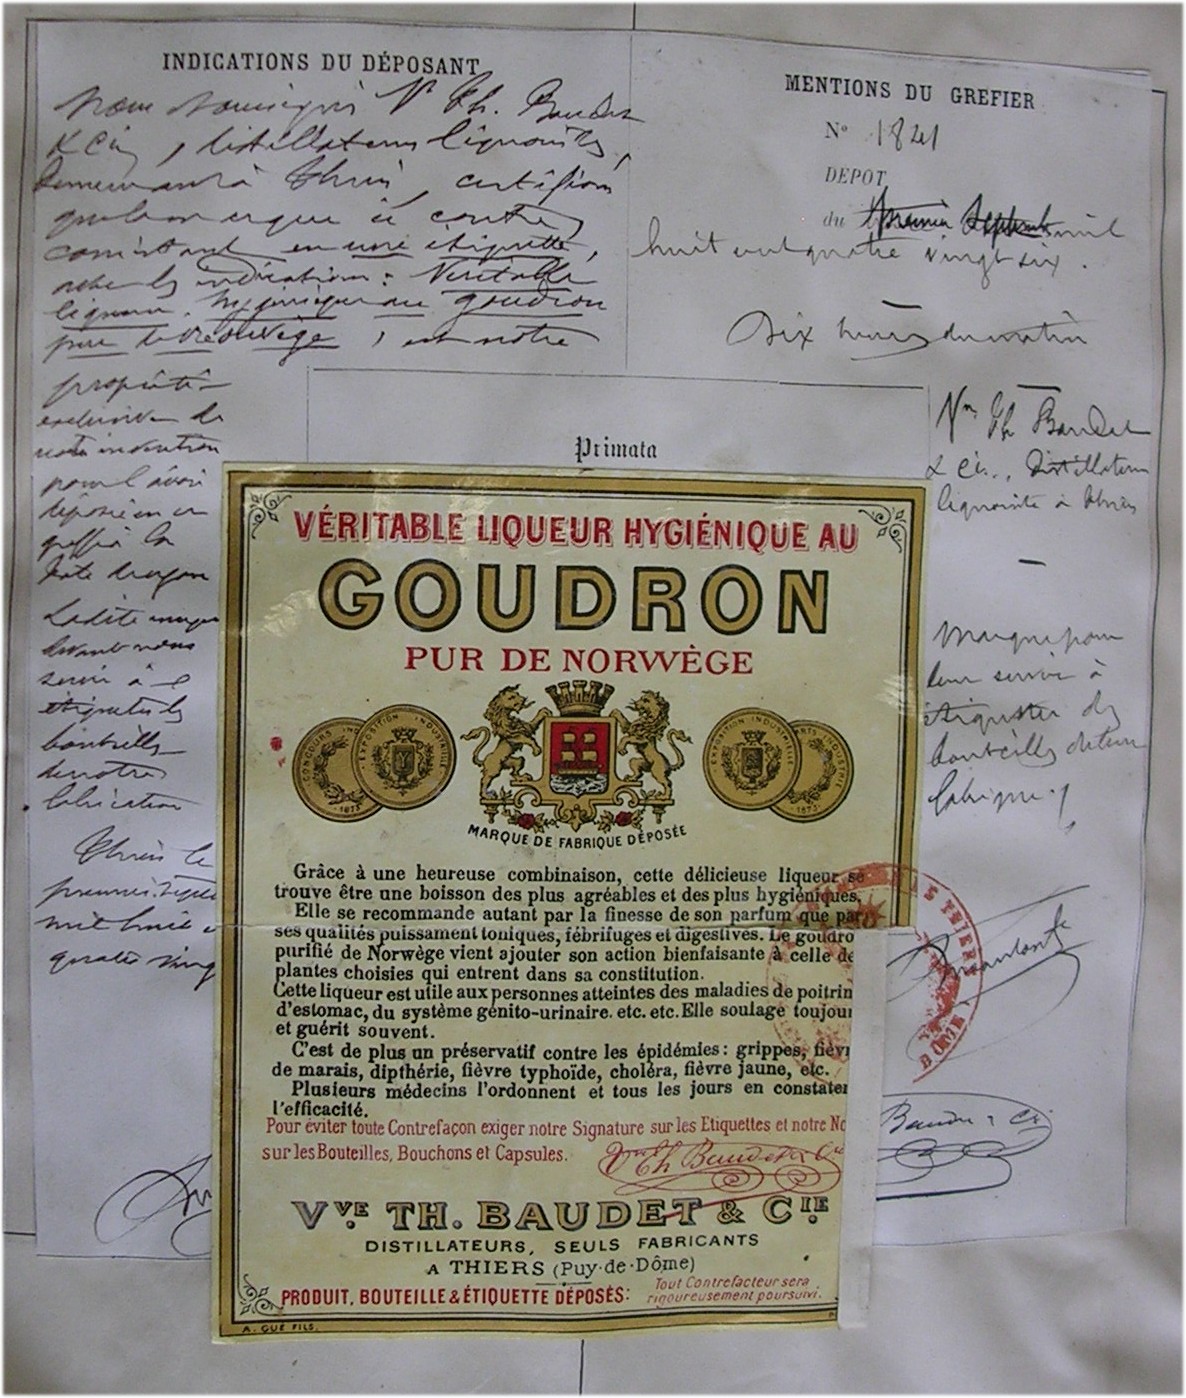 INDICATIONS DU DÉPOSANT
Nous soussignés Vve Th. Baudet
& Cie, distillateurs liquoristes,
demeurant à Thiers, certifions
que la marque ci contre
consistant en une étiquette,
avec les indications : Véritable
liqueur hygiénique au goudron
pur de Norwège, est notre
propriété
exclusive de
notre invention
pour l'avoir
déposée en ce
greffe la
Ladite marque
devant nous
servir à
étiqueter les
bouteilles
de notre
fabrication
Thiers le
premier
mil huit
quatre ving
MENTIONS DU GREFIER
N° 1841
DÉPOT
du premier Septembre mil
huit cent quatre vingt six.
Dix heures du matin
Primata
Vve Th Baudet
& Cie, Distillateurs
liquoriste à Thiers
Marque pour
leur servir à
étiqueter des
bouteilles de leur
fabrique.
VÉRITABLE LIQUEUR HYGIÉNIQUE AU
GOUDRON
PUR DE NORWÈGE
CONCOURS 1873
EXPOSITION INDUSTRIELLE
EXPOSITION INDUSTRIELLE
ARTS INDUSTRIE 1873
MARQUE DE FABRIQUE DÉPOSÉE
Grâce à une heureuse combinaison, cette délicieuse liqueur se
trouve être une boisson des plus agréables et des plus hygiéniques.
Elle se recommande autant par la finesse de son parfum que par
ses qualités puissament toniques, fébrifuges et digestives. Le goudro
purifié de Norwège vient ajouter son action bienfaisante à celle de
plantes choisies qui entrent dans sa constitution.
Cette liqueur est utile aux personnes atteintes des maladies de poitrin
d'estomac, du système génito-urinaire. etc. etc. Elle soulage toujour
et guérit souvent.
C'est de plus un préservatif contre les épidémies : grippes, fièvr
de marais, dipthérie, fièvre typhoïde, choléra, fièvre jaune, etc.
Plusieurs médecins l'ordonnent et tous les jours en constaten
l'efficacité.
Pour éviter toute Contrefaçon exiger notre Signature sur les Etiquettes et notre No
sur les Bouteilles, Bouchons et Capsules.
Vve Th Baudet & Cie
VVE TH. BAUDET & CIE
DISTILLATEURS, SEULS FABRICANTS
A THIERS (Puy-de-Dôme)
PRODUIT, BOUTEILLE & ÉTIQUETTE DÉPOSÉS:
Tout Contrefacteur sera
rigoureusement poursuivi.
A. GUÉ FILS.
THIERS
DOME
Baudet & Cie